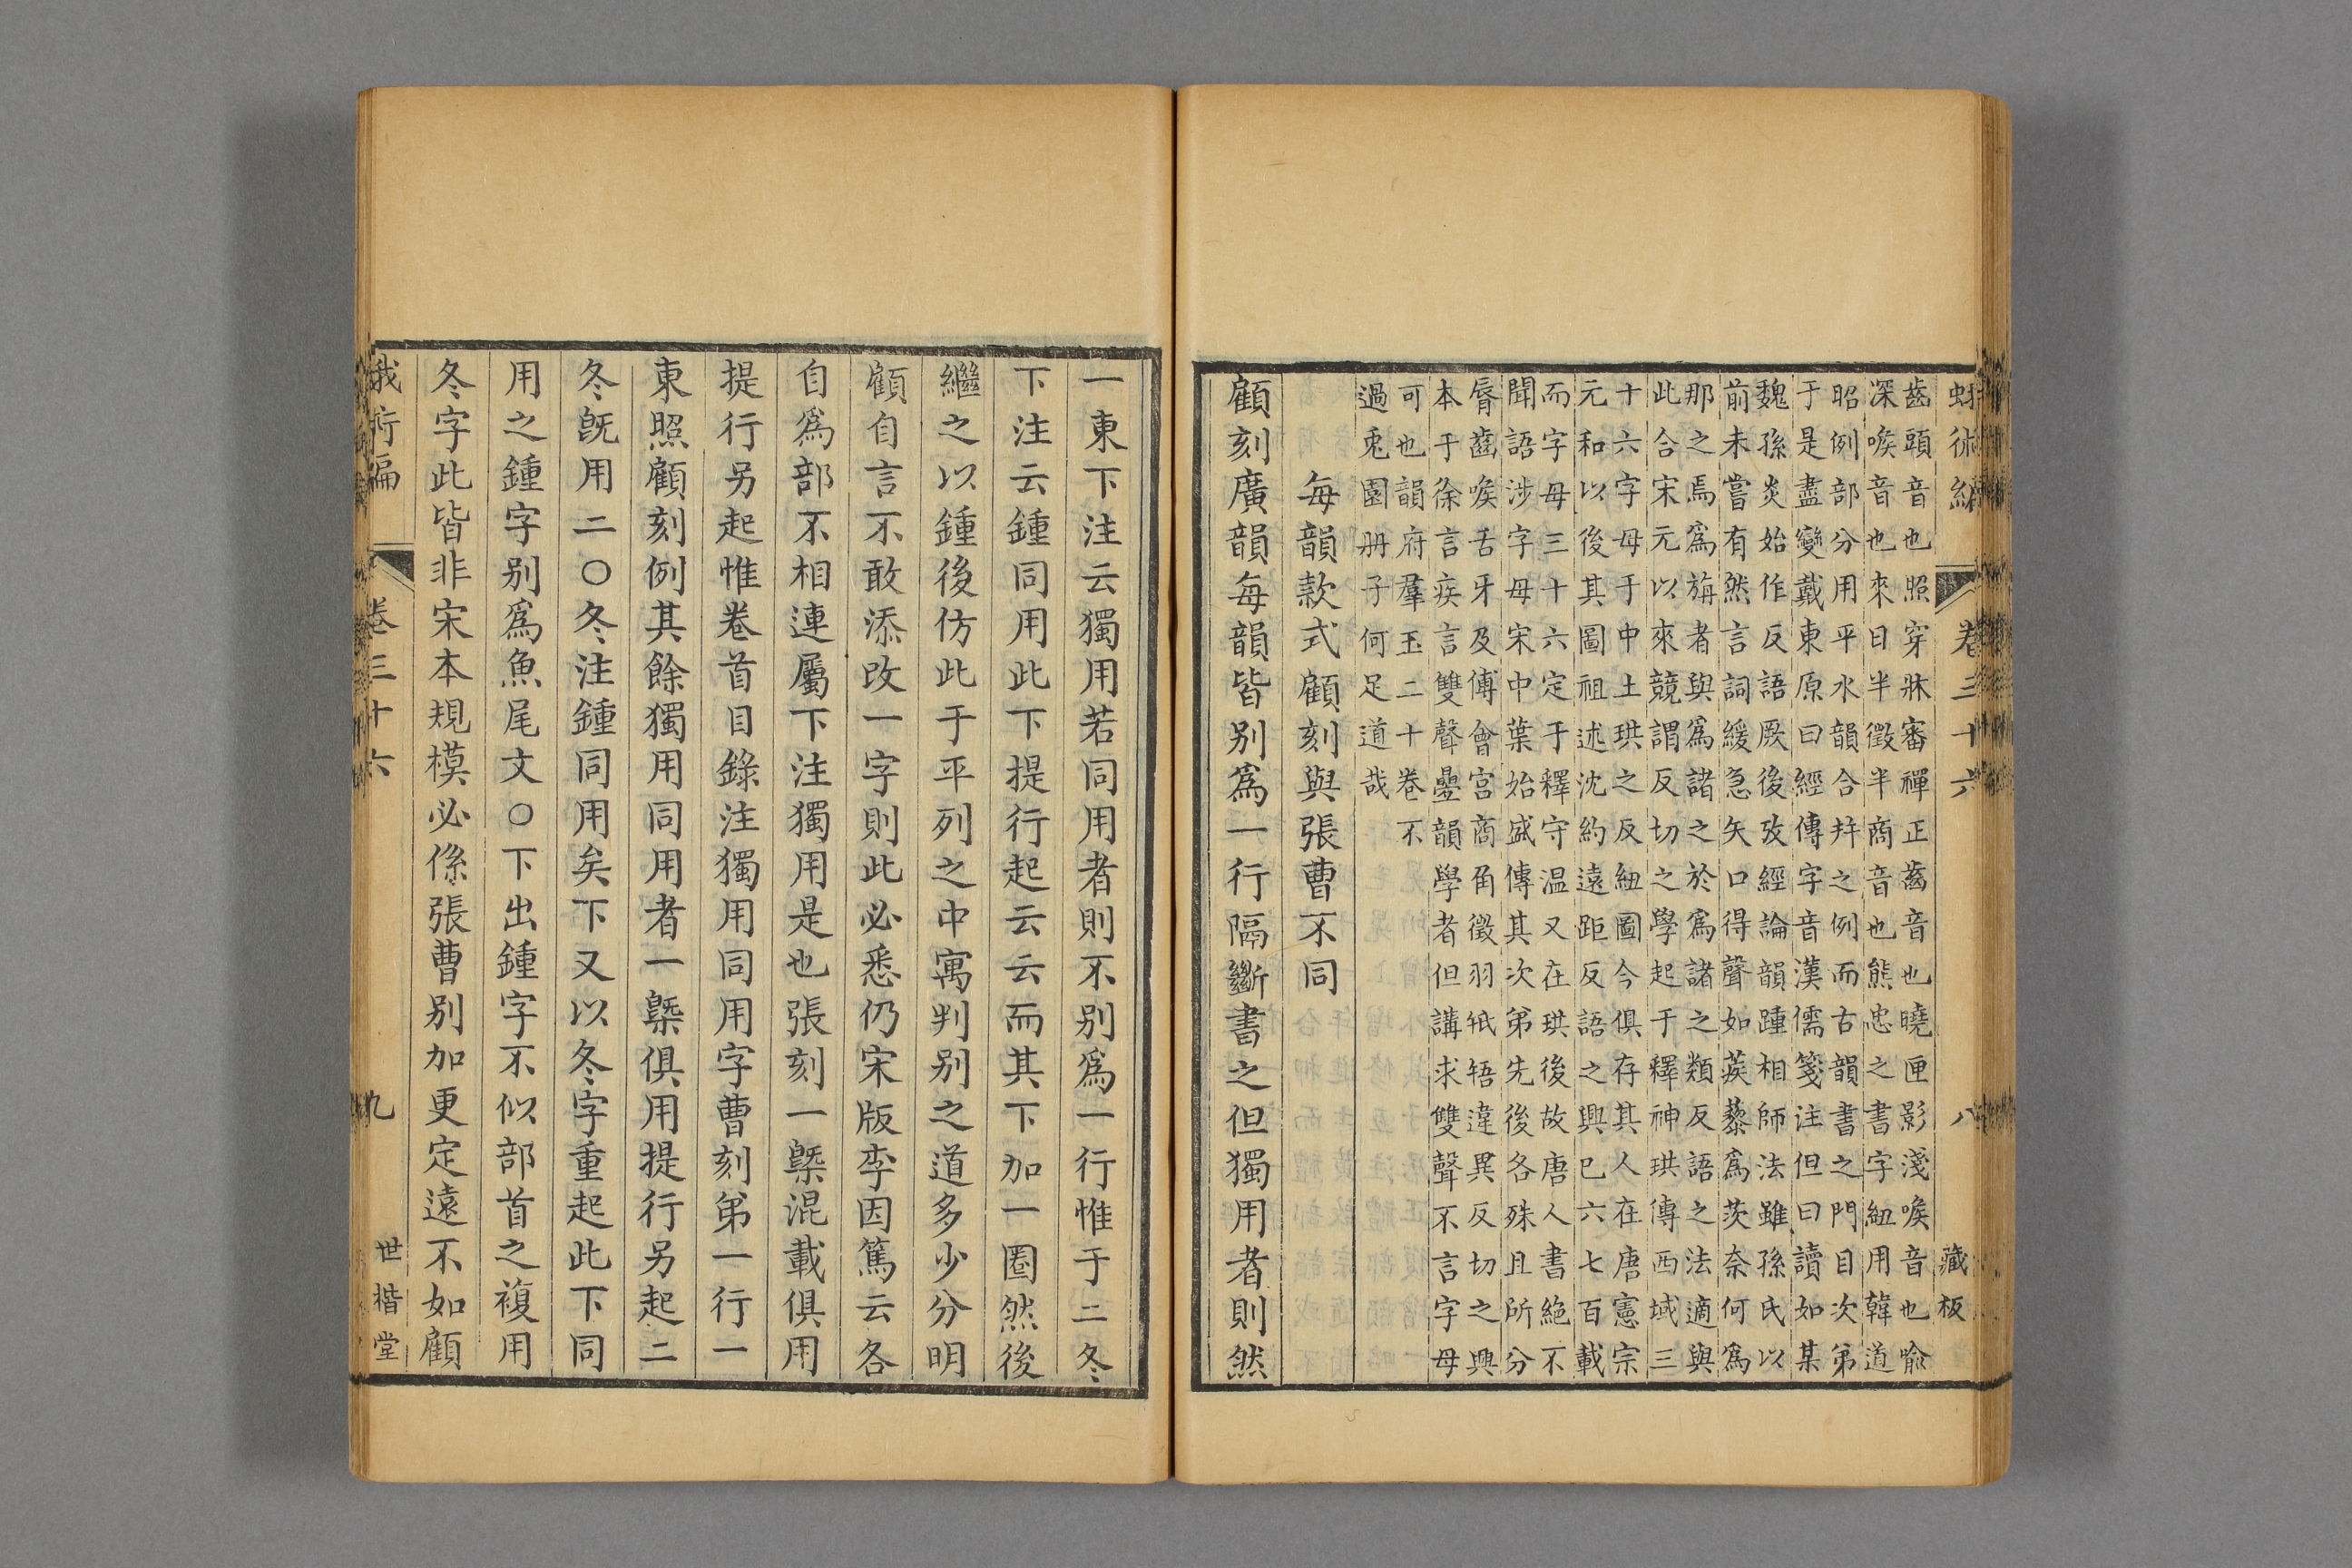 蛾術編 卷三十六 八 藏板
齒頭音也照穿牀審禪正齒音也曉匣影淺喉音也喻
深喉音也來日半徵半商音也熊忠之書字紐用韓道
昭例部分用平水韻合并之例而古韻書之門目次第
于是盡變戴東原曰經傳字音漢儒箋注但曰讀如某
魏孫炎始作反語厥後攷經論韻踵相師法雖孫氏以
前未嘗有然言詞緩急矢口得聲如蒺藜爲茨奈何爲
那之焉爲旃者與爲諸之於爲諸之類反語之法適與
此合宋元以來競謂反切之學起于釋神珙傳西域三
十六字母于中土珙之反紐圖今俱存其人在唐憲宗
元和以後其圖祖述沈約遠距反語之興已六七百載
而字母三十六定于釋守温又在珙後故唐人書絶不
聞語涉字母宋中葉始盛傳其次第先後各殊且所分
脣齒喉舌牙及傅會宮商角徵羽牴牾違異反切之興
本于徐言疾言雙聲疊韻學者但講求雙聲不言字母
可也韻府羣玉二十卷不
過兎園册子何足道哉
每韻款式顧刻與張曹不同
顧刻廣韻每韻皆别爲一行隔斷書之但獨用者則然
一東下注云獨用若同用者則不别爲一行惟于二冬
下注云鍾同用此下提行起云云而其下加一圈然後
繼之以鍾後仿此于平列之中寓判别之道多少分明
顧自言不敢添改一字則此必悉仍宋版李因篤云各
自爲部不相連屬下注獨用是也張刻一槩混載俱用
提行另起惟卷首目錄注獨用同用字曹刻第一行一
東照顧刻例其餘獨用同用者一槩俱用提行另起二
冬旣用二〇冬注鍾同用矣下又以冬字重起此下同
用之鍾字别爲魚尾文〇下出鍾字不似部首之複用
冬字此皆非宋本規模必係張曹别加更定遠不如顧
蛾術編 卷三十六 九 世楷堂